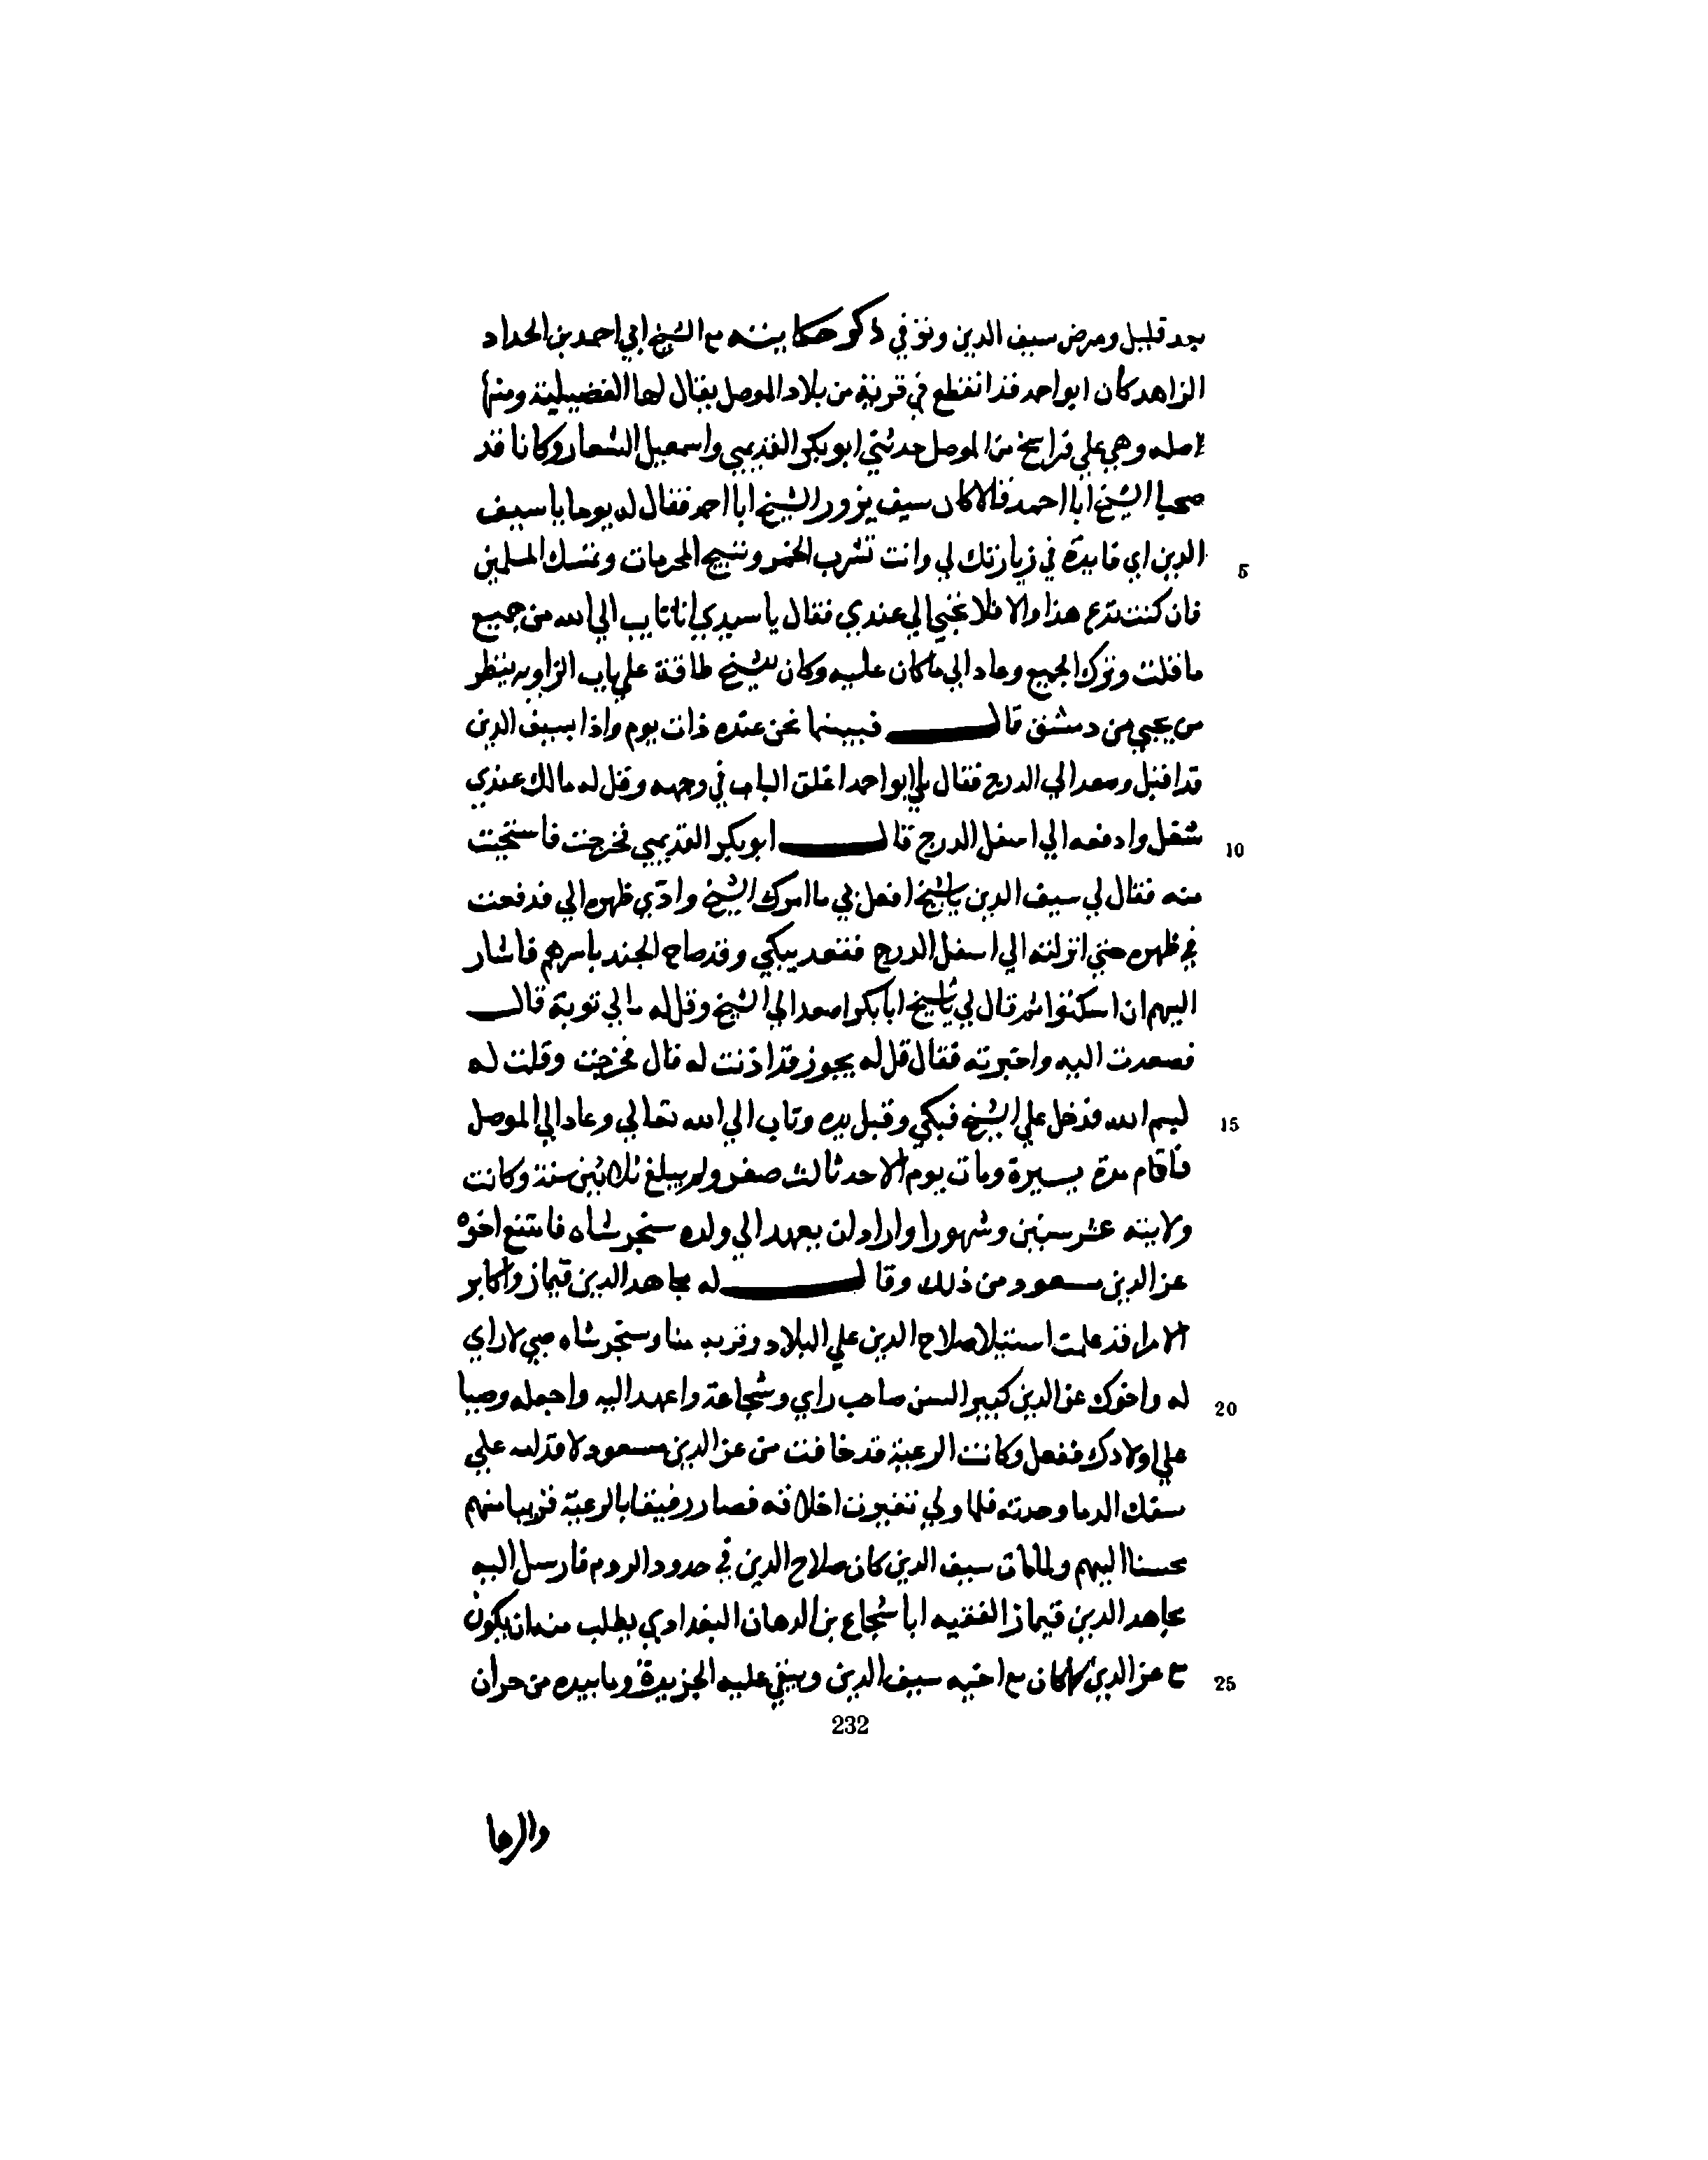 بعد قليل ومرض سيف الدين وتوفي ذكر حكايته مع الشيخ ابي احمد بن الحداد
الزاهد كان ابو احمد قد انقطع في قرية من بلاد الموصل يقال لها الفضيلية ومنها
اصله وهي علي فراسخ من الموصل حدثني ابو بكر القديمي واسمعيل الشعار وكانا قد
صحبا الشيخ ابا احمد قالا كان سيف يزور الشيخ ابا احمد فقال له يوما يا سيف
الدين اي فايدة في زيارتك لي وانت تشرب الخمر وتبيح المحرمات وتمسك المسلمين
5
فان كنت تدع هذا والا فلا تجي الي عندي فقال يا سيدي انا تايب الي الله من جميع
ما قلت وترك الجميع وعاد الي ما كان عليه وكان للشيخ طاقة علي باب الزاويه ينظر
من يجي من دمشق قال فبينما نحن عنده ذات يوم واذا بسيف الدين
قد اقبل وصعد الي الدرج فقال لي ابو احمد اغلق الباب في وجهه وقل له مالك عندي
شغل وادفعه الي اسفل الدرج قال ابو بكر القديمي فخرجت فاستحيت
10
منه فقال لي سيف الدين يا شيخ افعل بي ما امرك الشيخ وادي ظهره الي فدفعت
في ظهره حتي انزلته الي اسفل الدرج فقعد يبكي وقد صاح الجند باسرهم فاشار
اليهم ان اسكتوا ثم قال لي يا شيخ ابا بكر اصعد الي الشيخ وقل له ما لي توبة قال
فصعدت اليه واخبرته فقال قل له يجوز قد اذنت له قال فخرجت وقلت له
بسم الله فدخل علي الشيخ فبكي وقبل يده وتاب الي الله تعالي وعاد الي الموصل
15
فاقام مدة يسيرة ومات يوم الاحد ثالث صفر ولم يبلغ ثلاثين سنة وكانت
ولايته عشر سنين وشهورا واراد ان يعهد الي ولده سنجر شاه فامتنع اخوه
عز الدين مسعود من ذلك وقال له مجاهد الدين قيماز واكابر
الامرا قد علمت استيلا صلاح الدين علي البلاد وقربه منا وسنجر شاه صبي لا راي
له واخوك عز الدين كبير السن صاحب راي وشجاعة واعهد اليه واجعله وصيا
20
علي اولادك ففعل وكانت الرعية قد خافت من عز الدين مسعود لاقدامه علي
سفك الدما وحدته فلما ولي تغيرت اخلاقه فصار رفيقا بالرعية قريبا منهم
محسنا اليهم ولما مات سيف الدين كان صلاح الدين في حدود الروم فارسل اليه
مجاهد الدين قيماز الفقيه ابا شجاع بن الدهان البغدادي يطلب منه ان يكون
مع عز الدين كما كان مع اخيه سيف الدين ويبقي عليه الجزيرة وما بيده من حران
25
232
والرها